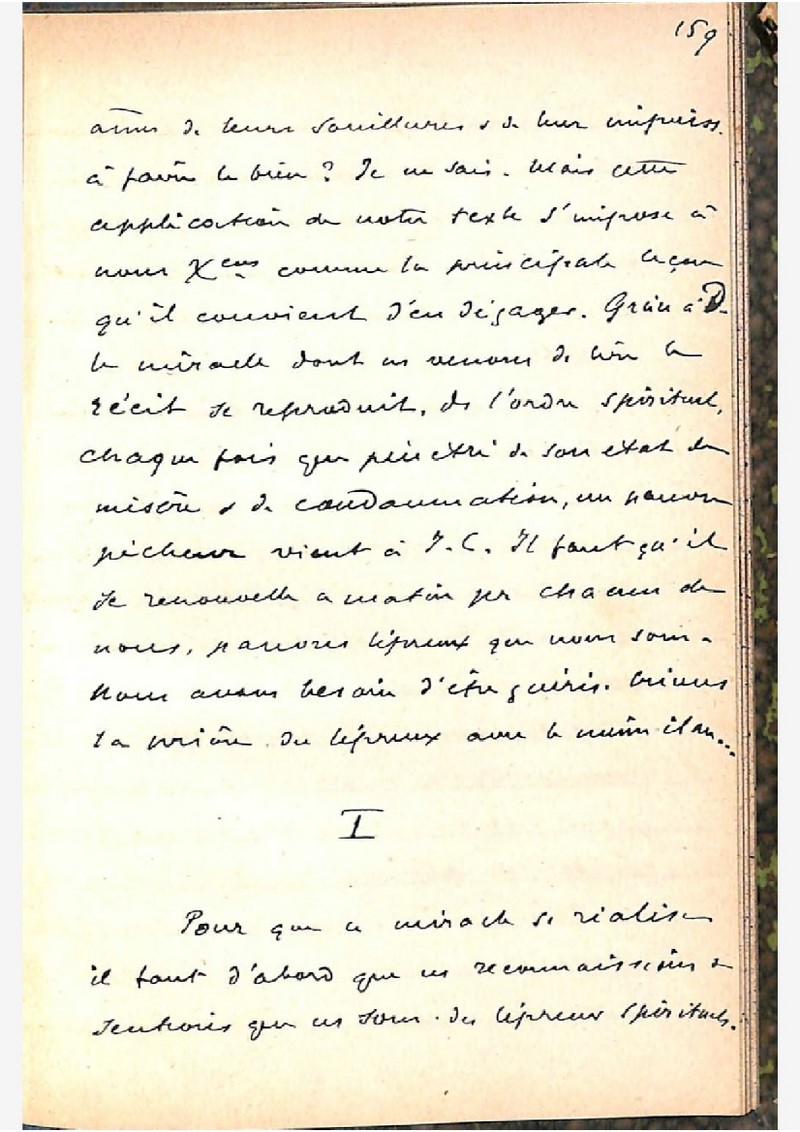 159
âmes de leurs souillures & de leur impuiss.
à faire le bien ? Je ne sais. Mais cette
application de notre texte s'impose à
nous Xens comme la principale leçon
qu'il convient d'en dégager. Grâce à D.
le miracle dont ns venons de lire le
récit se reproduit, ds l'ordre spirituel,
chaque fois que pénétré de son état de
misère & de condamnation, un pauvre
pécheur vient à J.C. Il faut qu'il
se renouvelle ce matin pr chacun de
nous, pauvres lépreux que nous som-
Nous avons besoin d'être guéris.
la prière du lépreux avec le même élan...
I
Pour que ce miracle se réalise
il faut d'abord que ns reconnaissions &
sentions que ns som. des lépreux spirituels.